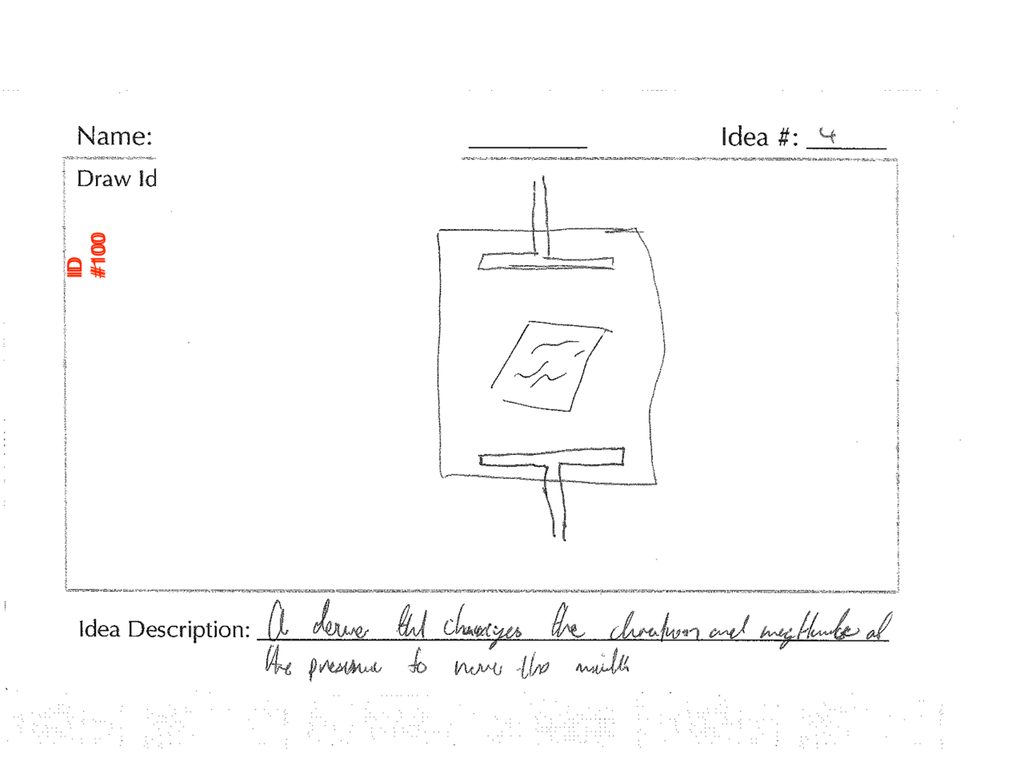 Name:
Idea #: 4
Draw Id
ID
#100
Idea Description: A that changes the direction and of
the pressure to move the